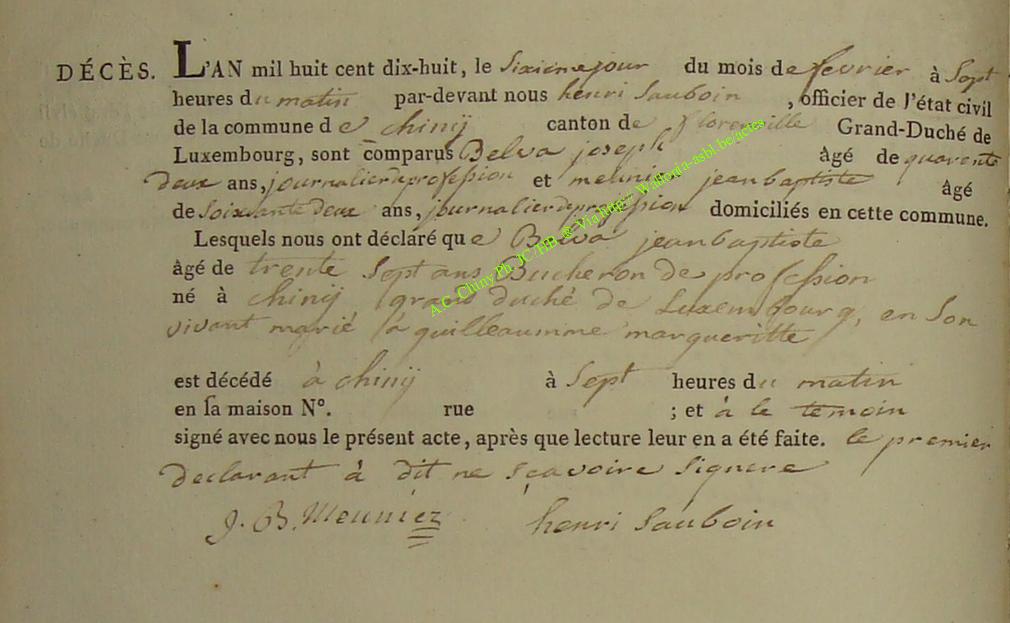 DÉCÈS. L'AN mil huit cent dix-huit, le Sixiemejour du mois de fevrier à Sept
heures du matin par-devant nous henri Sauboin , officier de l'état civil
de la commune de chinij canton de florenville Grand-Duché de
Luxembourg, sont comparus Belva joseph âgé de quarente
deux ans, journalier de profession et meunier jean baptiste âgé
de Soixante deux ans, journalier de profession domiciliés en cette commune.
Lesquels nous ont déclaré que Belva jeanbaptiste
âgé de trente Sept ans Bucheron de profession
né à chinij grand duché de Luxembourg, en Son
vivant marié à guilleaumme margueritte
est décédé à chinij à Sept heures du matin
en sa maison N°. rue ; et à le temoin
signé avec nous le présent acte, après que lecture leur en a été faite. le premier
declarant à dit ne sçavoire signere
J. B. Meunier henri Sauboin
A.C. Chiny Ph. JC /HB @ Via Luggw Wallonia-asbl.be/actes